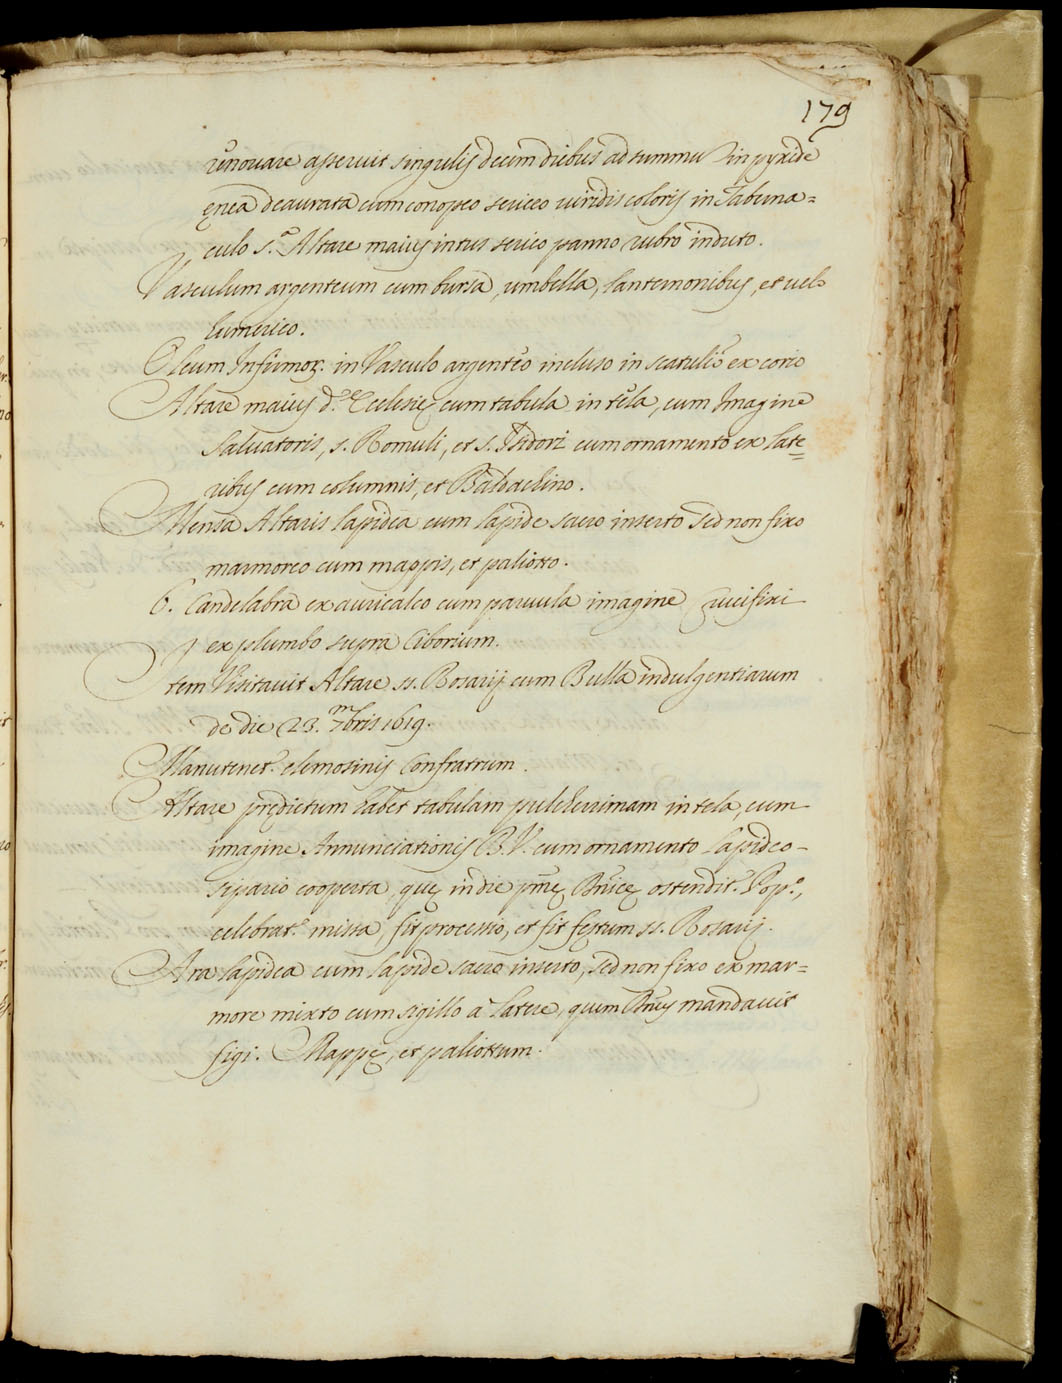 179
renovare asseruit singulis decem diebus ad summu in pyxide
ęnea deaurata cum conopeo sericeo viridis coloris in Taberna=
culo s.ª Altare maius intus serico panno rubro induto.
Vasculum argenteum cum bursa, umbella, lanternonibus, et velo
humerico.
Oleum Infirmor. in Vasculo argenteo incluso in scatula ex corio
Altare maius d.ę Ecclesię cum tabula in tela, cum Imagine
Salvatoris, s. Romuli, et s. Isidori cum ornamento ex late=
ribus cum columnis, et Baldachino.
Mensa Altaris lapidea cum lapide sacro inserto sed non fixo
marmoreo cum mappis, et paliotto.
6. Candelabra ex auricalco cum parvula imagine Crucifixi
ex plumbo supra Ciborium.
Item Visitavit Altare ss. Rosarij cum Bulla indulgentiarum
de die 23. 7mbris 1619.
Manutenet.r elemosinis Confratrum.
Altare prędictum habet tabulam pulcherrimam in tela, cum
imagine Annunciationis B. V. cum ornamento lapideo
sipario cooperta, quę in die pmę Dnicę ostendit.r Pop.º,
celebrat.r missa, fit processio, et fit festum ss. Rosarij.
Ara lapidea cum lapide sacro inserto, sed non fixo ex mar=
more mixto cum sigillo à latere, quem Dnus mandavit
figi. Mappę, et paliottum.